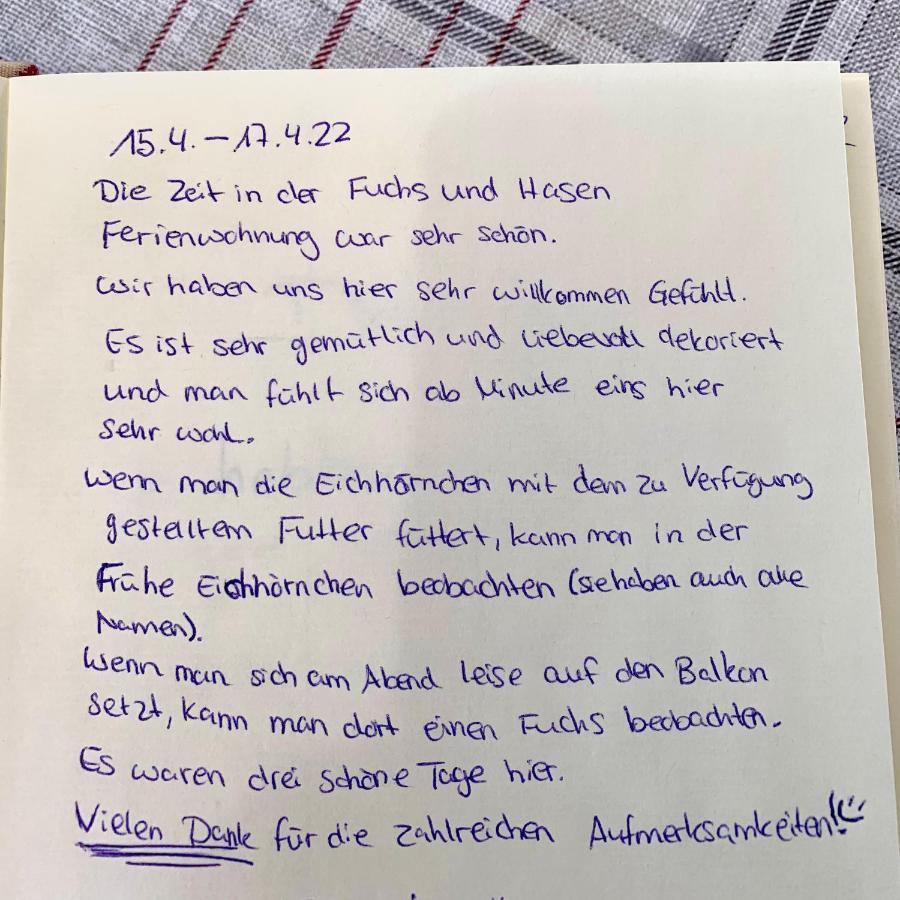 15.4. – 17.4.22
Die Zeit in der Fuchs und Hasen
Ferienwohnung war sehr schön.
Wir haben uns hier sehr willkommen Gefühlt.
Es ist sehr gemütlich und liebevoll dekoriert
und man fühlt sich ab Minute eins hier
sehr wohl.
Wenn man die Eichhörnchen mit dem zu Verfügung
gestelltem Futter füttert, kann man in der
Frühe Eichhörnchen beobachten (sie haben auch alle
Namen).
Wenn man sich am Abend leise auf den Balkon
setzt, kann man dort einen Fuchs beobachten.
Es waren drei schöne Tage hier.
Vielen Dank für die zahlreichen Aufmerksamkeiten!